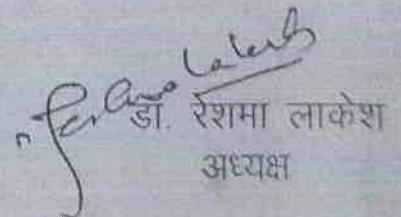 डॉ. रेशमा लाकेश
अध्यक्ष